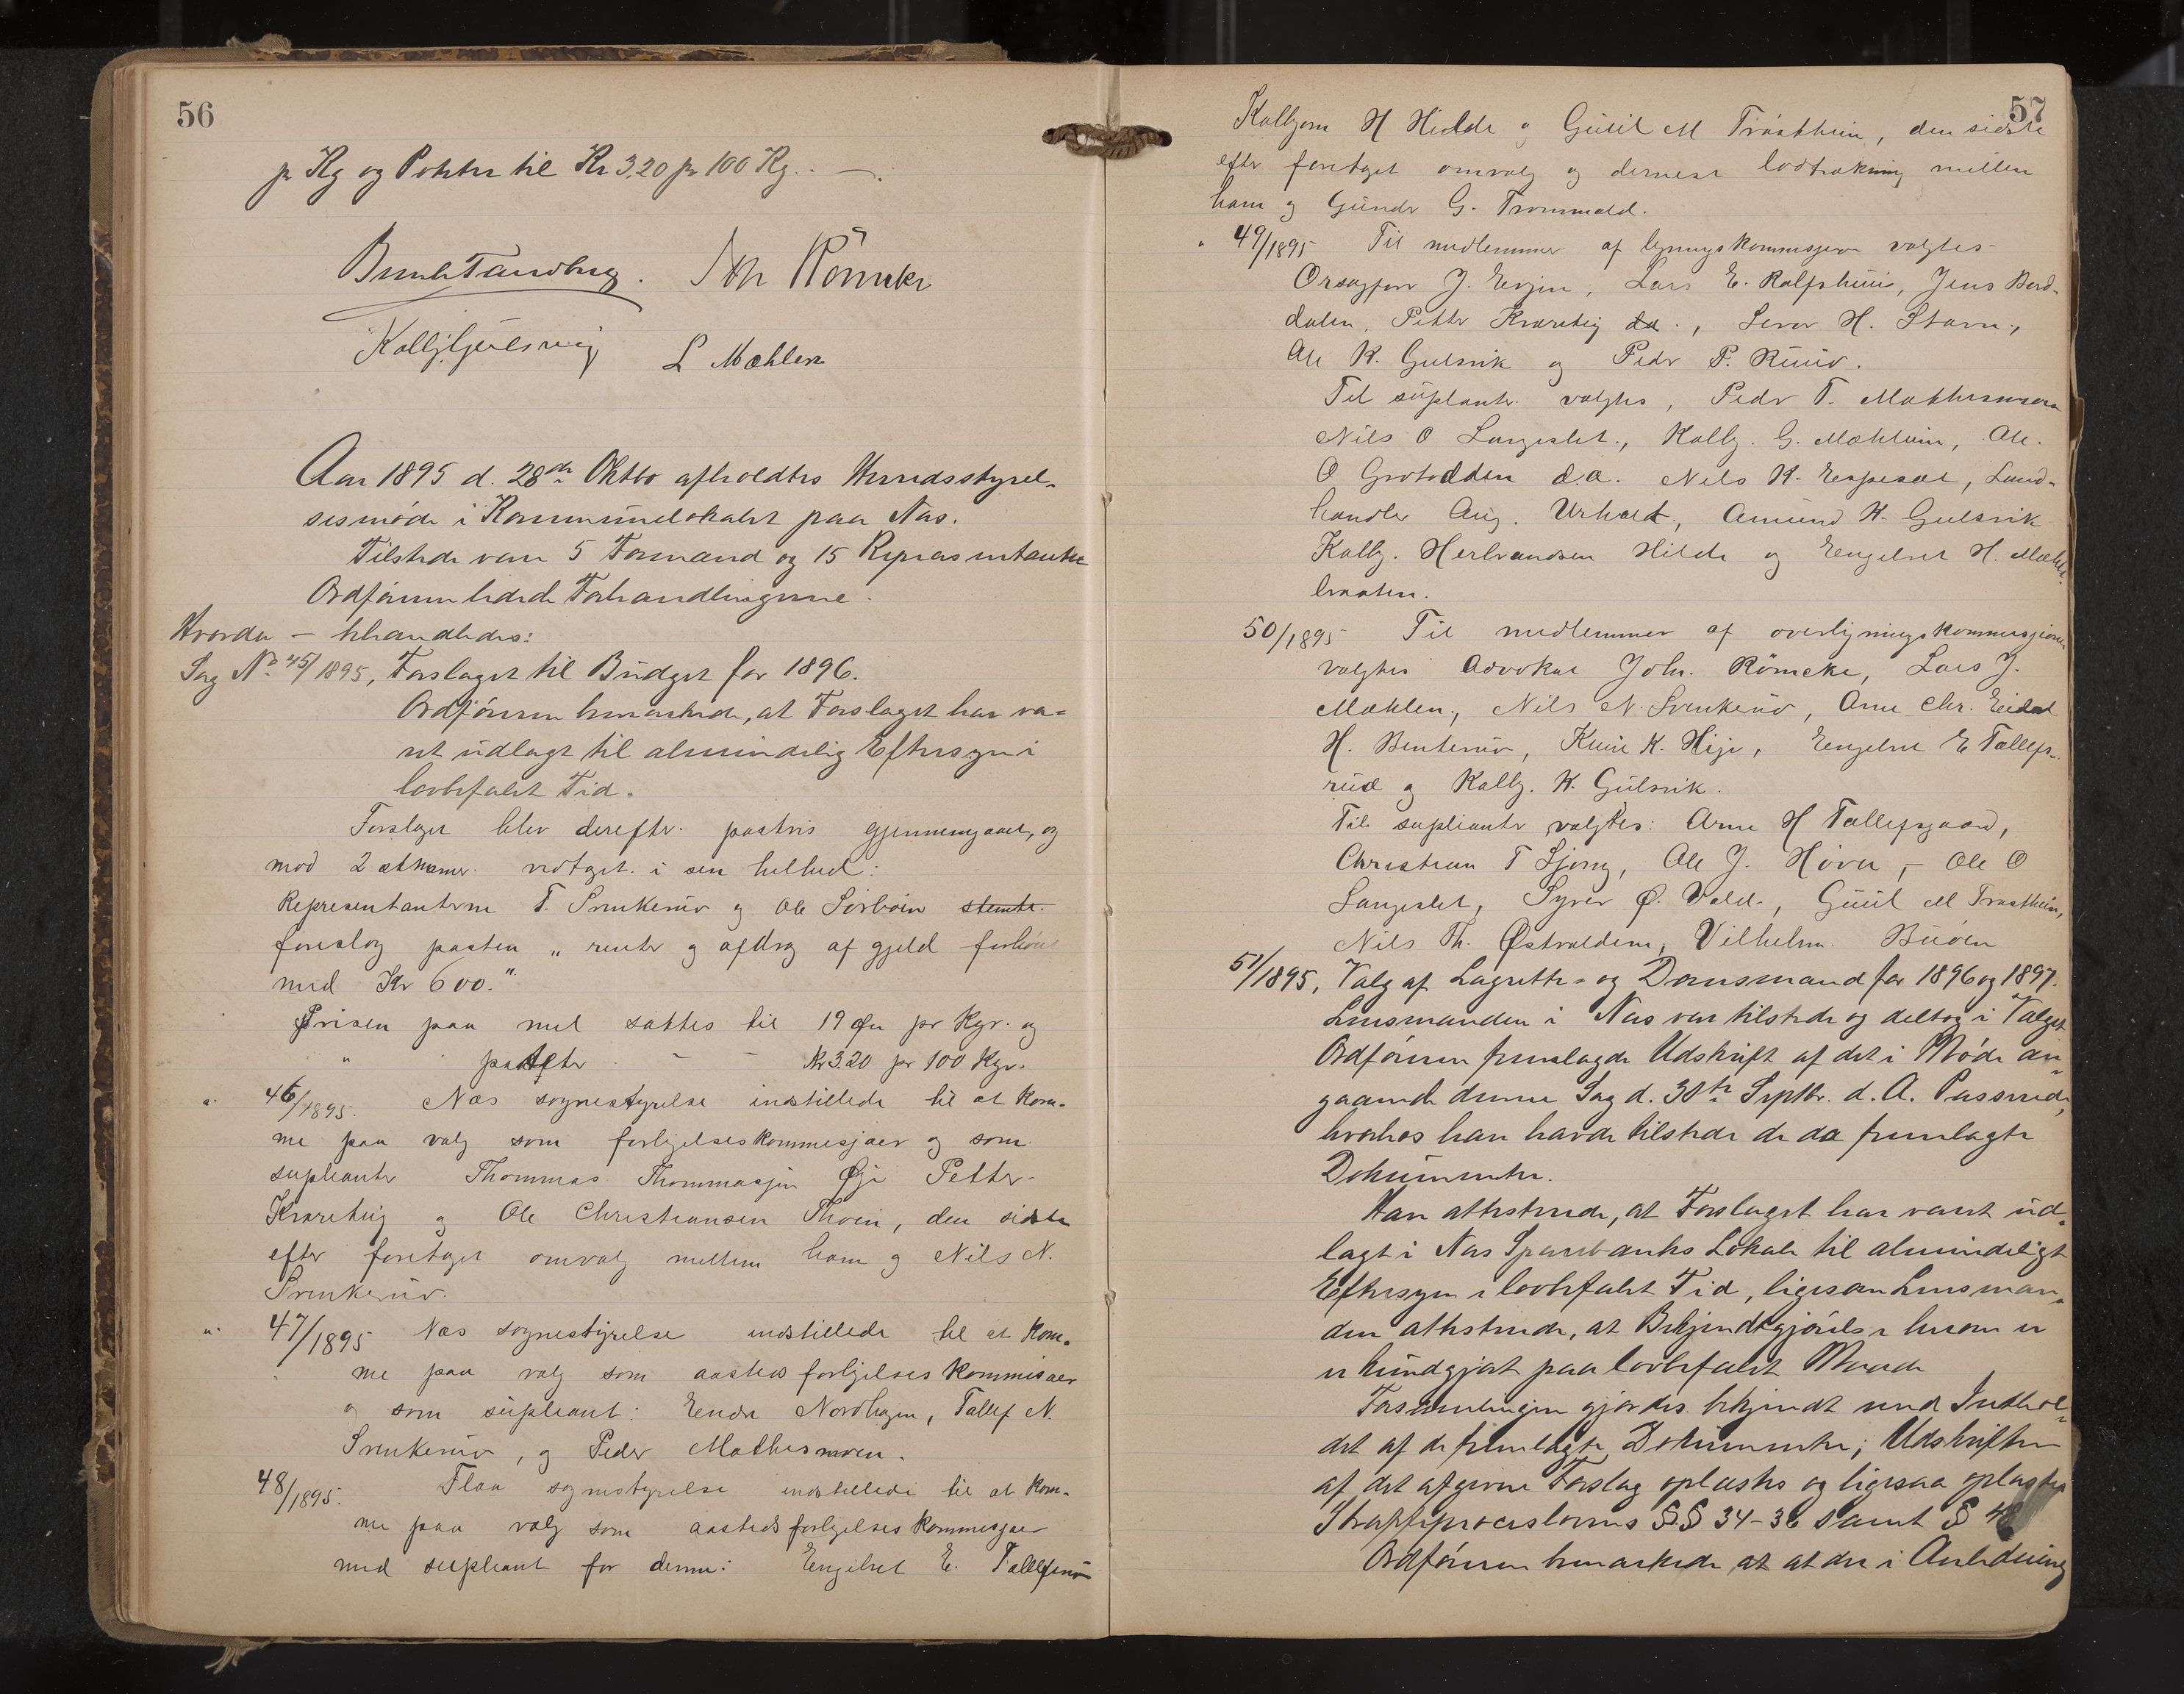 56
pr Kg og Poteter til Kr 3,20 pr 100 Kg. . —.
Bernh Tandberg. Joh Römcke
Kolbj Gulsvig L Mæhlen
Aar 1895 d. 28de Oktbr afholdtes Herredsstyrel-
sesmöde i Kommunelokalet paa Næs.
Tilstede vare 5 Formænd og 15 Repræsentanter
Ordföreren ledede Forhandlingerne.
Hvorda – behandledes:
Sag No 45/1895, Forslaget til Budget for 1896.
Ordföreren bemærkede, at Forslaget har væ-
ret udlagt til almindelig Eftersyn i
lovbefalet Tid.
Forslaget blev derefter postvis gjennemgaaet, og
mod 2 stemmer vedtaget i sin helhed:
Representanterne T. Svenkerud og Ole Sørbøen stemte
foreslog posten „renter og afdrag af gjeld forhöiet
med Kr 600."
Prisen paa mel sattes til 19 øre pr Kgr. og
" poteter - - Kr 3.20 pr 100 Kgr.
" 46/1895. Næs sognestyrelse indstillede til at kom-
me paa valg som forligelseskommesjær og som
supleanter Thommas Thommasjen Øje Petter
Kværetuig og Ole Christiansen Thoen, den sidste
efter foretaget omvalg mellem ham og Nils N.
Svenkerud.
" 47/1895 Næs sognestyrelse indstillede til at kom-
me paa valg som aasteds forligelses kommisær
og som supleant: Endre Nordhagen, Tollef N.
Svenkerud, og Peder Mathesmoen.
48/1895. Flaa sognestyrelse indstillede til at kom-
me paa valg som aasteds forligelses kommesjær
med supleant for denne: Engebret E. Tollefsrud
57
Kolbjørn H Hilde og Guul M Trøstheim, den sidste
efter foretaget omvalg og dernest lodtrækning mellem
ham og Gunder G. Trommald.
" 49/1895 Til medlemmer af ligningskommisjon valgtes
J. Evjen, Lars E. Rolfshuus, Jens Berd-
dalen, Petter Kværetuig d.æ., Sevor H. Stavn,
Ole K. Gulsvik og Peder P. Ruud.
Til supleanter valgtes, Peder T. Mathesmoen
Nils O Langeslet, Kolbj. G. Mæhlum, Ole.
O Grotodden d.æ. Nils K. Espeset, Land-
handler Aug. Urholt, Amund K. Gulsvik
Kolbj. Herbrandsen Hilde og Engebret H. Mæhle-
braaten.
50/1895 Til medlemmer af overligningskommissjonen
valgtes Advokat Joh. Römcke, Lars J.
Mæhlen, Nils N. Svenkerud, Arne Chr. Eidal
H. Benterud, Knut K. Hije, Engebret E Tollefs-
rud og Kolbj. K. Gulsvik.
Til supleanter valgtes: Arne H Tollefsgaard,
Christian T Ljong, Ole J. Høva, – Ole O
Langeslet, Syver Ø. Vold, Guul M Trøstheim,
Nils Th. Østvolden, Vilhelm Buøen
51/1895, Valg af Lagrette- og Domsmænd for 1896 og 1897.
Lensmanden i Næs var tilstede og deltog i Valget
Ordföreren fremlagde Udskrift af det i Möde an-
gaaende denne Sag d. 30te Septbr. d. A. Passerede,
hvorhos han havde tilstede de da fremlagte
Dokumenter.
Han attesterede, at Forslaget har været ud-
lagt i Næs Sparebanks Lokale til almindeligt
Eftersyn i lovbefalet Tid, ligesom Lensman-
den attesterede, at Bekjendtgjörelse herom er
er kundgjort paa lovbefalet Maade
Forsamlingen gjordes bekjendt med Indhol-
det af de fremlagte Dokumenter; Udskriften
af det afgivne Forslag oplæstes og ligesaa oplæstes
Straffeproceslovens §§ 34-36 samt §
Ordföreren bemærkede at at der i Anledning